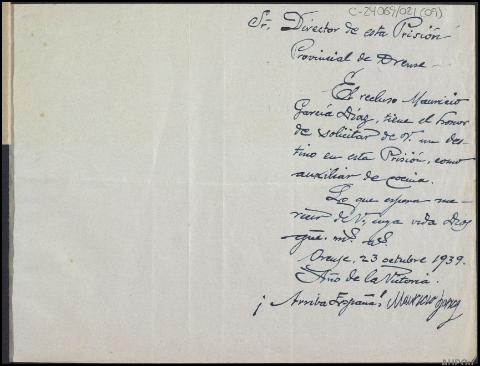 C-24069/021 (09)
Sr. Director de esta Prisión
Provincial de Orense -
El recluso Mauricio
García Díaz, tiene el honor
de solicitar de V. un des-
tino en esta Prisión, como
auxiliar de cocina.
Lo que espera me-
recer de V, cuya vida Dios
gue. ms. as.
Orense, 23 octubre 1939.
Año de la Victoria.
¡Arriba España! Mauricio García